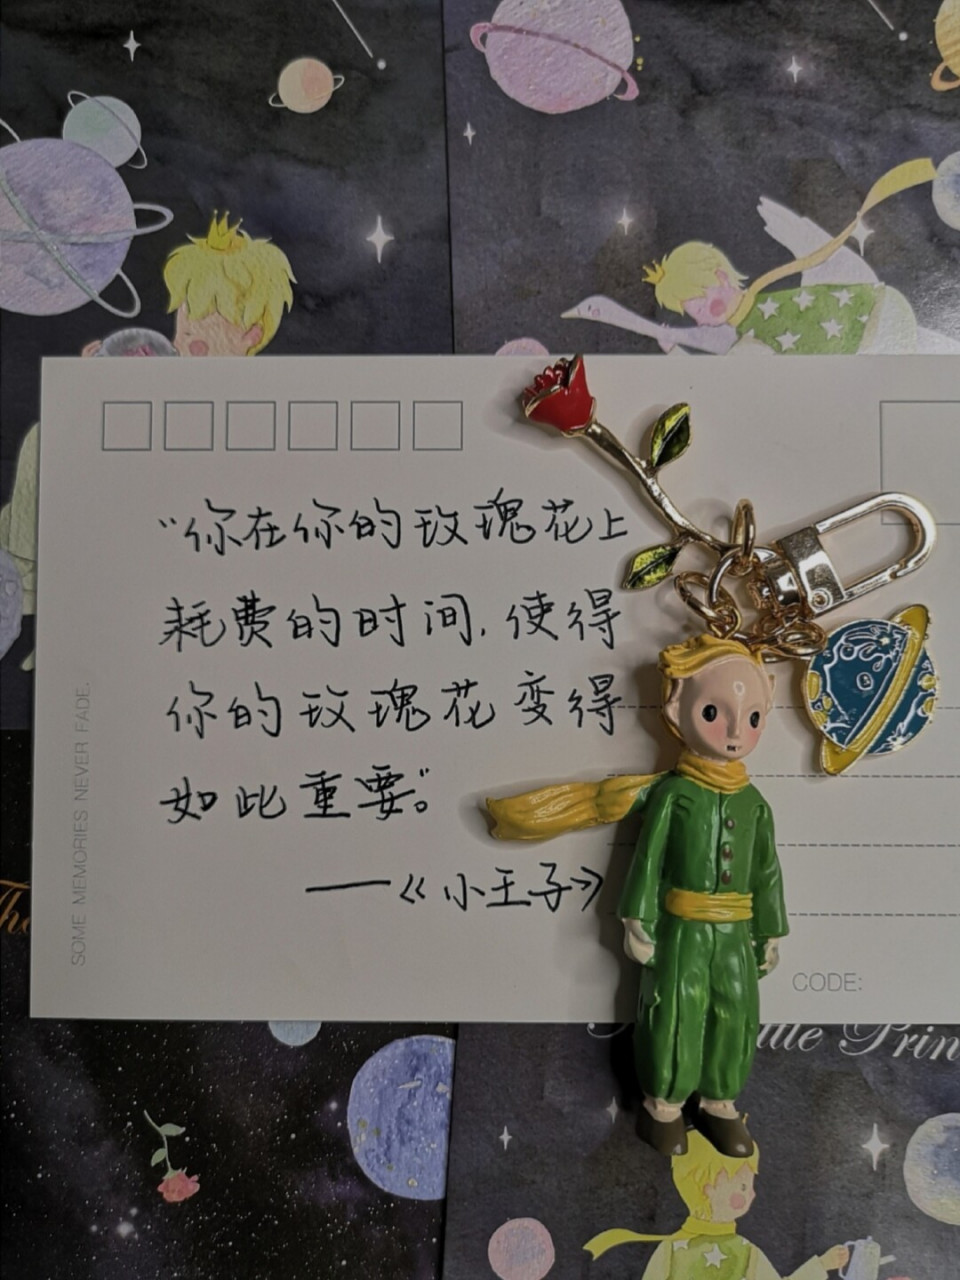 “你在你的玫瑰花上
耗费的时间，使得
你的玫瑰花变得
如此重要”。
——《小王子》
SOME MEMORIES NEVER FADE.
CODE: